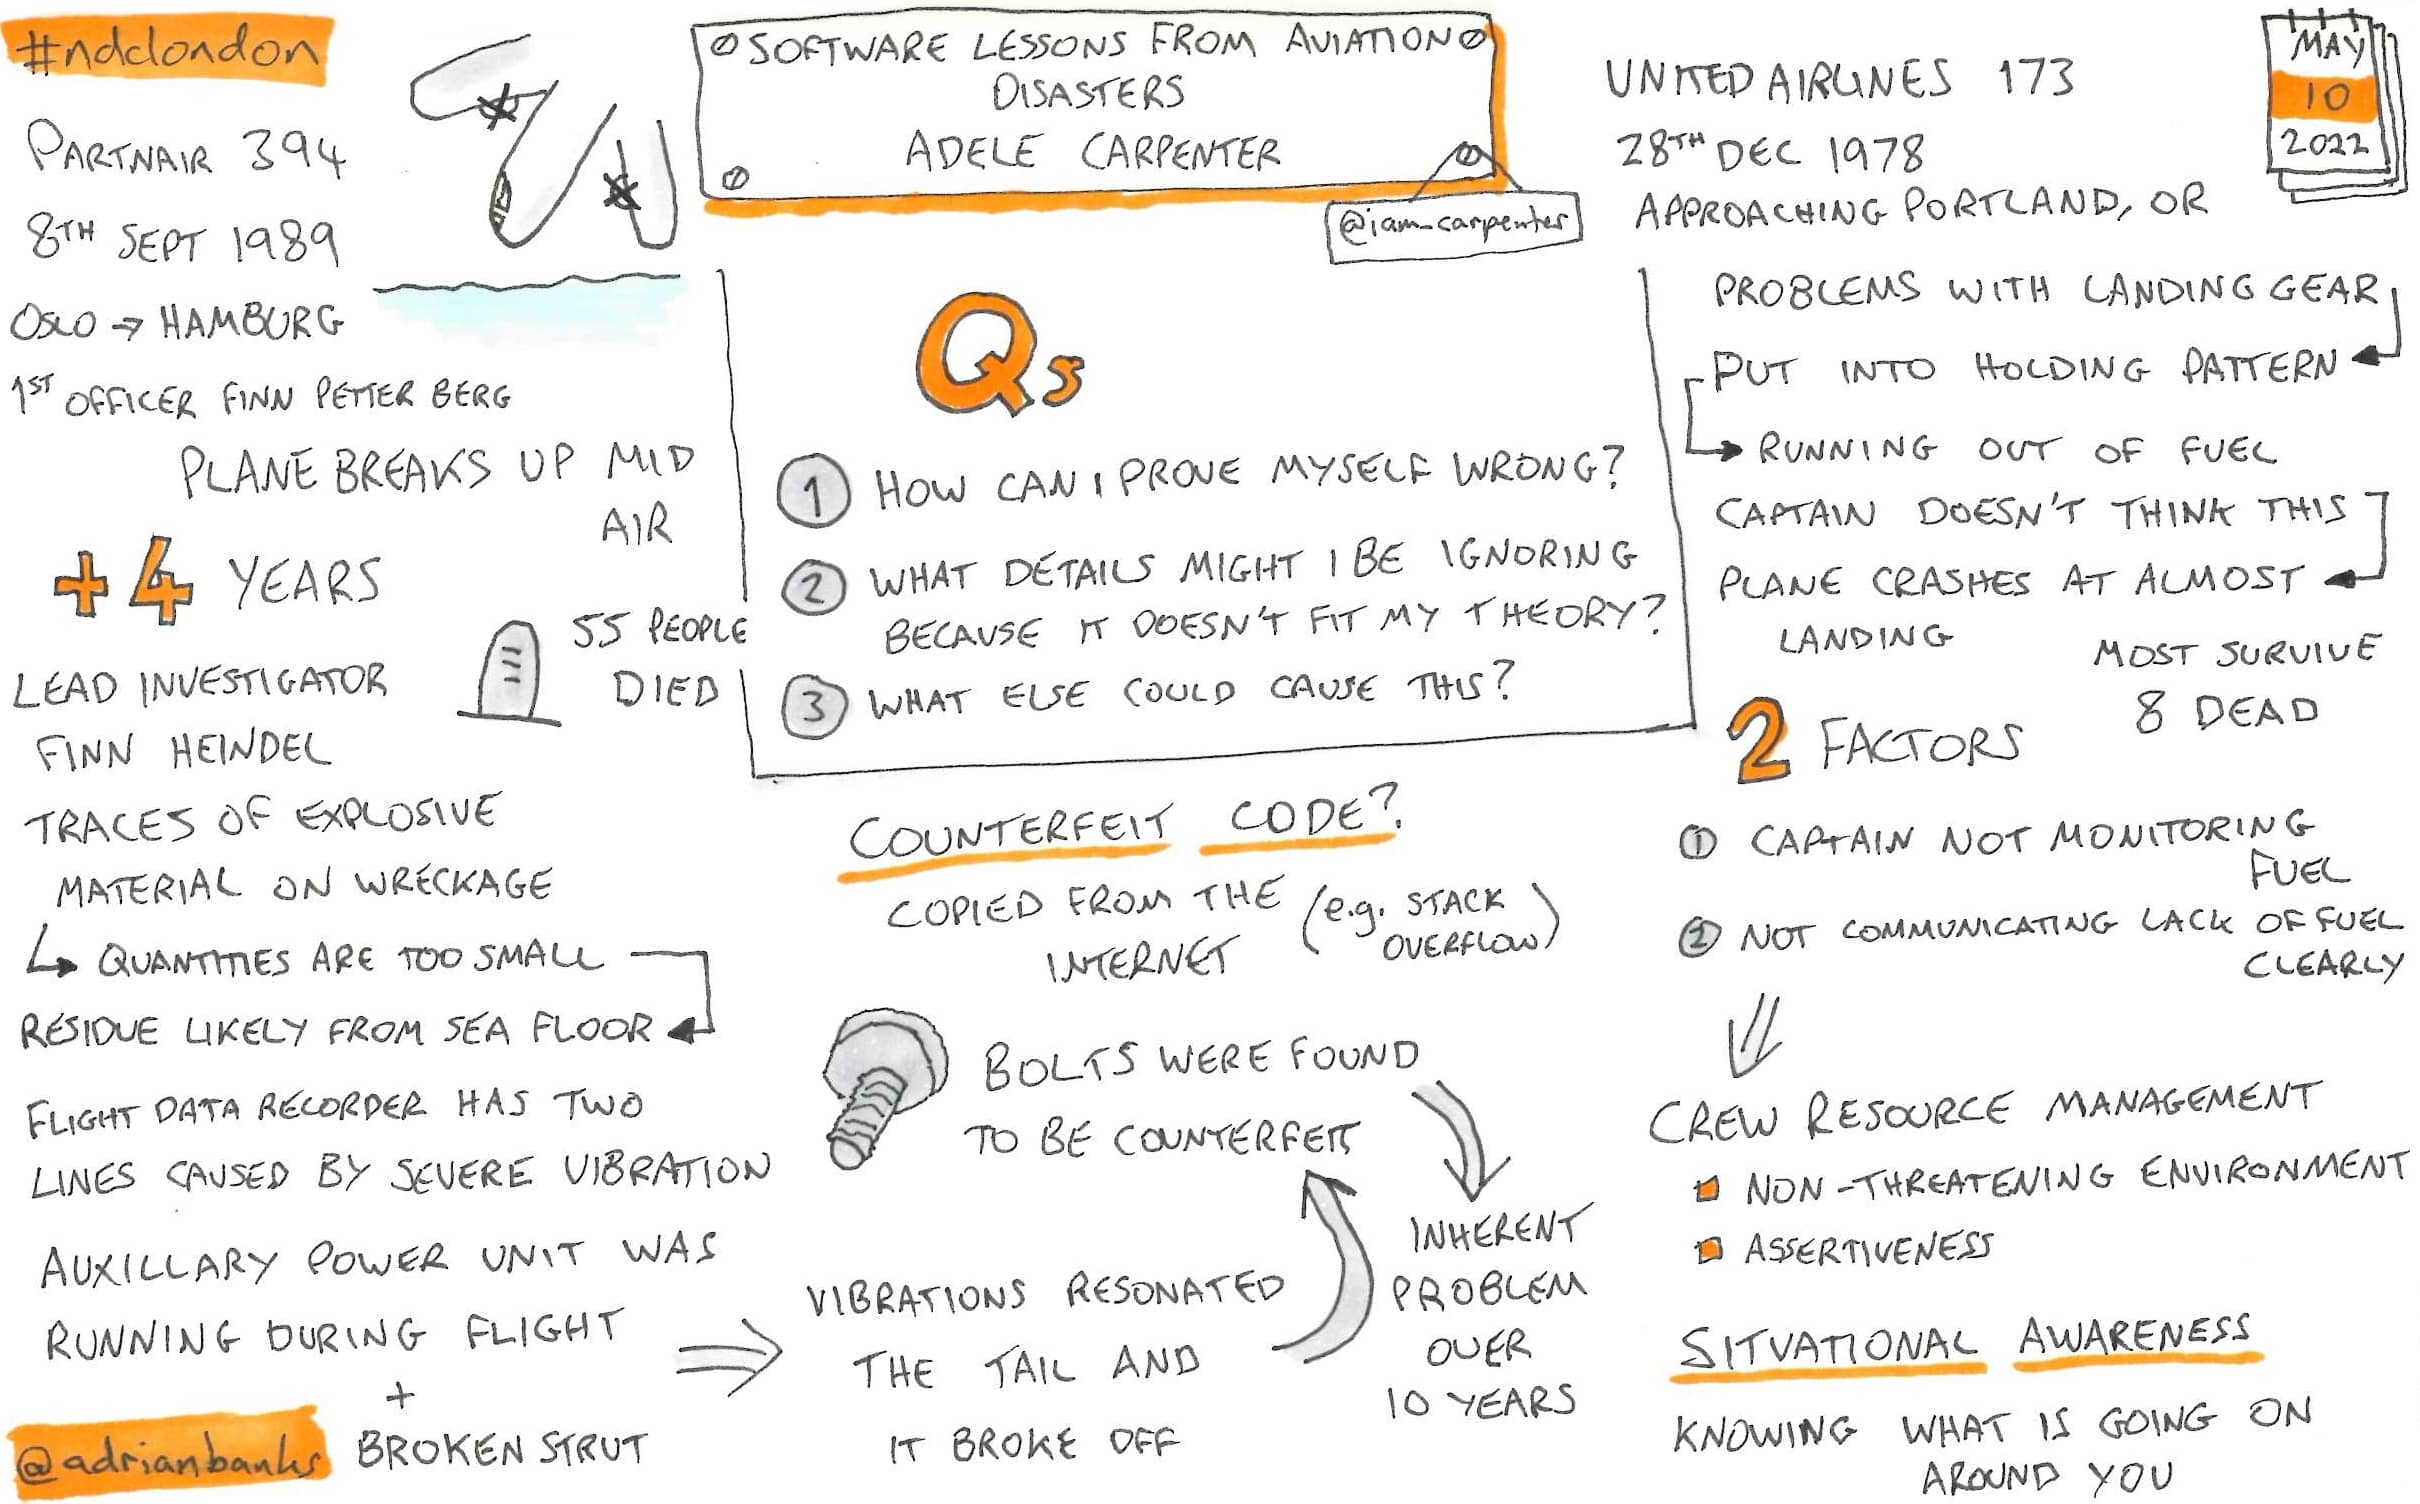 #ndclondon
PARTNAIR 394
8TH SEPT 1989
OSLO → HAMBURG
1ST OFFICER FINN PETTER BERG
PLANE BREAKS UP MID
AIR
+4 YEARS
55 PEOPLE
DIED
LEAD INVESTIGATOR
FINN HEINDEL
TRACES OF EXPLOSIVE
MATERIAL ON WRECKAGE
QUANTITIES ARE TOO SMALL
RESIDUE LIKELY FROM SEA FLOOR
FLIGHT DATA RECORDER HAS TWO
LINES CAUSED BY SEVERE VIBRATION
AUXILLARY POWER UNIT WAS
RUNNING DURING FLIGHT
+
BROKEN STRUT
@adrianbanks
SOFTWARE LESSONS FROM AVIATION
DISASTERS
ADELE CARPENTER
@iam_carpenter
Qs
1 HOW CAN I PROVE MYSELF WRONG?
2 WHAT DETAILS MIGHT I BE IGNORING
BECAUSE IT DOESN'T FIT MY THEORY?
3 WHAT ELSE COULD CAUSE THIS?
COUNTERFEIT CODE?
COPIED FROM THE
INTERNET
(e.g. STACK
OVERFLOW)
BOLTS WERE FOUND
TO BE COUNTERFEIT
VIBRATIONS RESONATED
THE TAIL AND
IT BROKE OFF
INHERENT
PROBLEM
OVER
10 YEARS
UNITED AIRLINES 173
28TH DEC 1978
APPROACHING PORTLAND, OR
MAY
10
2022
PROBLEMS WITH LANDING GEAR
PUT INTO HOLDING PATTERN
RUNNING OUT OF FUEL
CAPTAIN DOESN'T THINK THIS
PLANE CRASHES AT ALMOST
LANDING
MOST SURVIVE
8 DEAD
2 FACTORS
1 CAPTAIN NOT MONITORING
FUEL
2 NOT COMMUNICATING LACK OF FUEL
CLEARLY
CREW RESOURCE MANAGEMENT
NON-THREATENING ENVIRONMENT
ASSERTIVENESS
SITUATIONAL AWARENESS
KNOWING WHAT IS GOING ON
AROUND YOU